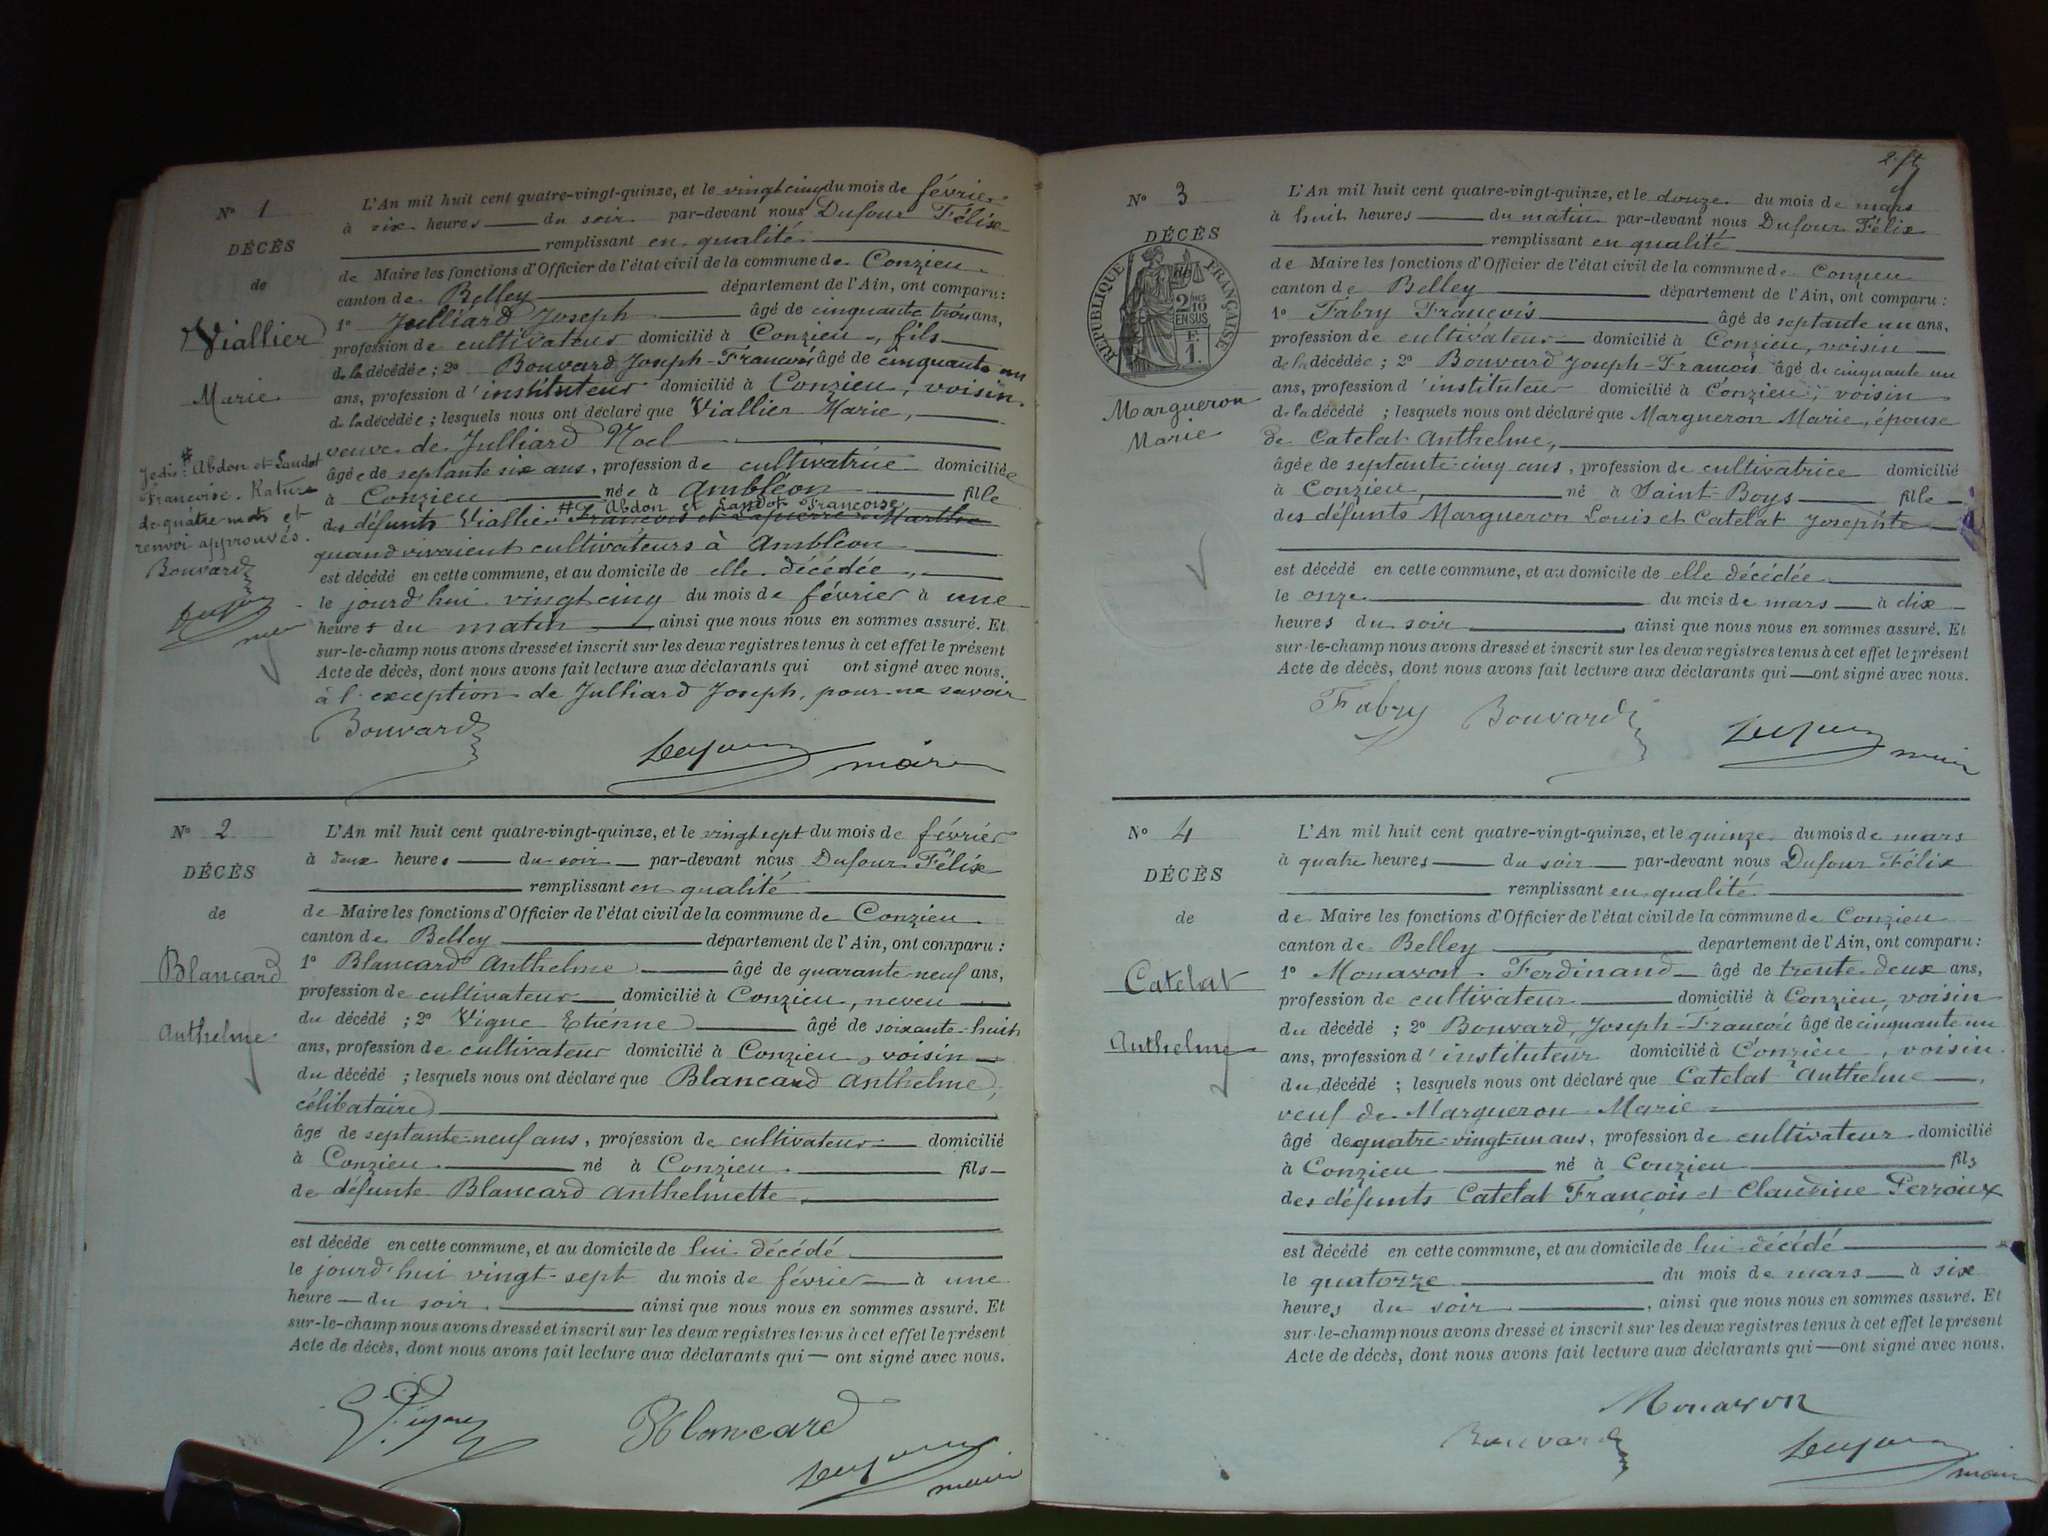 N° 1
DÉCÈS
de
Viallier
Marie
# Je dis: Abdon et Landot
Françoise. Rature
de quatre mots et
renvoi approuvés.
Bouvard
Dufour
maire
L'An mil huit cent quatre-vingt-quinze, et le vingt cinq du mois de février
à six heures du soir par-devant nous Dufour Félix
remplissant en qualité
de Maire les fonctions d'Officier de l'état civil de la commune de Conzieu
canton de Belley département de l'Ain, ont comparu :
1° Julliard Joseph âgé de cinquante trois ans,
profession de cultivateur domicilié à Conzieu, fils
de la décédée ; 2° Bouvard Joseph-François âgé de cinquante un
ans, profession d'instituteur domicilié à Conzieu, voisin
de la décédée ; lesquels nous ont déclaré que Viallier Marie,
veuve de Julliard Noel
âgée de septante six ans, profession de cultivatrice domiciliée
à Conzieu née à Ambléon fille
# Abdon et Landot Françoise
des défunts Viallier François et Lapierre Marthe
quand vivaient cultivateurs à Ambléon
est décédé en cette commune, et au domicile de elle décédée,
le jourd'hui vingt cinq du mois de février à une
heures du matin ainsi que nous nous en sommes assuré. Et
sur-le-champ nous avons dressé et inscrit sur les deux registres tenus à cet effet le présent
Acte de décès, dont nous avons fait lecture aux déclarants qui ont signé avec nous.
à l'exception de Julliard Joseph, pour ne savoir
Bouvard
Dufour maire
N° 2
DÉCÈS
de
Blancard
Anthelme
L'An mil huit cent quatre-vingt-quinze, et le vingt sept du mois de février
à deux heures du soir par-devant nous Dufour Félix
remplissant en qualité
de Maire les fonctions d'Officier de l'état civil de la commune de Conzieu
canton de Belley département de l'Ain, ont comparu :
1° Blancard Anthelme âgé de quarante-neuf ans,
profession de cultivateur domicilié à Conzieu, neveu
du décédé ; 2° Vigne Etienne âgé de soixante-huit
ans, profession de cultivateur domicilié à Conzieu, voisin
du décédé ; lesquels nous ont déclaré que Blancard Anthelme,
célibataire
âgé de septante-neuf ans, profession de cultivateur domicilié
à Conzieu né à Conzieu fils
de défunte Blancard Anthelmette,
est décédé en cette commune, et au domicile de lui décédé
le jourd'hui vingt-sept du mois de février à une
heure du soir. ainsi que nous nous en sommes assuré. Et
sur-le-champ nous avons dressé et inscrit sur les deux registres tenus à cet effet le présent
Acte de décès, dont nous avons fait lecture aux déclarants qui ont signé avec nous.
E Vigne Blancard
Dufour maire
N° 3
DÉCÈS
RÉPUBLIQUE FRANÇAISE
2/10 EN SUS
F. 1.
Margueron
Marie
L'An mil huit cent quatre-vingt-quinze, et le douze du mois de mars
à huit heures du matin par-devant nous Dufour Félix
remplissant en qualité
de Maire les fonctions d'Officier de l'état civil de la commune de Conzieu
canton de Belley département de l'Ain, ont comparu :
1° Fabry François âgé de septante un ans,
profession de cultivateur domicilié à Conzieu, voisin
de la décédée ; 2° Bouvard Joseph-François âgé de cinquante un
ans, profession d'instituteur domicilié à Conzieu, voisin
de la décédé ; lesquels nous ont déclaré que Margueron Marie, épouse
de Catelat Anthelme,
âgée de septante-cinq ans, profession de cultivatrice domicilié
à Conzieu, né à Saint-Boys fille
des défunts Margueron Louis et Catelat Josephte
est décédé en cette commune, et au domicile de elle décédée
le onze du mois de mars à dix
heures du soir, ainsi que nous nous en sommes assuré. Et
sur-le-champ nous avons dressé et inscrit sur les deux registres tenus à cet effet le présent
Acte de décès, dont nous avons fait lecture aux déclarants qui ont signé avec nous.
Fabry Bouvard
Dufour maire
N° 4
DÉCÈS
de
Catelat
Anthelme
L'An mil huit cent quatre-vingt-quinze, et le quinze du mois de mars
à quatre heures du soir par-devant nous Dufour Félix
remplissant en qualité
de Maire les fonctions d'Officier de l'état civil de la commune de Conzieu
canton de Belley département de l'Ain, ont comparu :
1° Monavon Ferdinand âgé de trente-deux ans,
profession de cultivateur domicilié à Conzieu, voisin
du décédé ; 2° Bouvard, Joseph-François âgé de cinquante un
ans, profession d'instituteur domicilié à Conzieu, voisin
du décédé ; lesquels nous ont déclaré que Catelat Anthelme,
veuf de Margueron Marie
âgé de quatre-vingt-un ans, profession de cultivateur domicilié
à Conzieu né à Conzieu fils
des défunts Catelat François et Claudine Perroux
est décédé en cette commune, et au domicile de lui décédé
le quatorze du mois de mars à six
heures du soir, ainsi que nous nous en sommes assuré. Et
sur-le-champ nous avons dressé et inscrit sur les deux registres tenus à cet effet le présent
Acte de décès, dont nous avons fait lecture aux déclarants qui ont signé avec nous.
Monavon
Bouvard Dufour maire